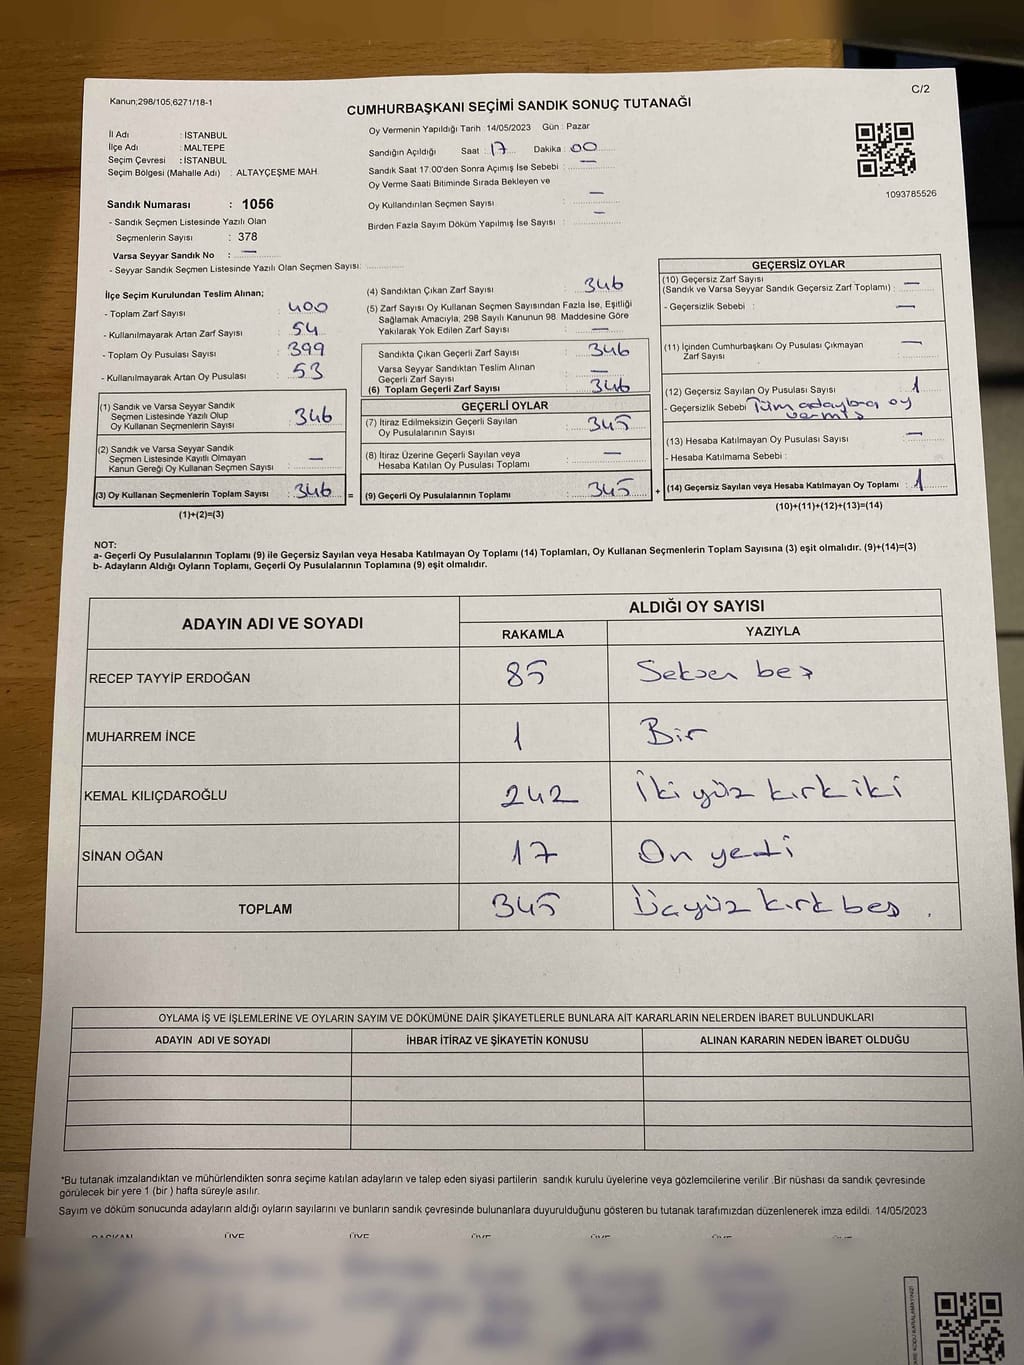 Kanun;298/105;6271/18-1
C/2
CUMHURBAŞKANI SEÇİMİ SANDIK SONUÇ TUTANAĞI
İl Adı : İSTANBUL
İlçe Adı : MALTEPE
Seçim Çevresi : İSTANBUL
Seçim Bölgesi (Mahalle Adı) : ALTAYÇEŞME MAH
Sandık Numarası : 1056
- Sandık Seçmen Listesinde Yazılı Olan
Seçmenlerin Sayısı : 378
Varsa Seyyar Sandık No : —
- Seyyar Sandık Seçmen Listesinde Yazılı Olan Seçmen Sayısı:
Oy Vermenin Yapıldığı Tarih : 14/05/2023 Gün : Pazar
Sandığın Açıldığı Saat : 17 Dakika : 00
Sandık Saat 17:00'den Sonra Açımış İse Sebebi : —
Oy Verme Saati Bitiminde Sırada Bekleyen ve
Oy Kullandırılan Seçmen Sayısı : —
Birden Fazla Sayım Döküm Yapılmış İse Sayısı : —
1093785526
İlçe Seçim Kurulundan Teslim Alınan;
- Toplam Zarf Sayısı : 400
- Kullanılmayarak Artan Zarf Sayısı : 54
- Toplam Oy Pusulası Sayısı : 399
- Kullanılmayarak Artan Oy Pusulası : 53
(1) Sandık ve Varsa Seyyar Sandık
Seçmen Listesinde Yazılı Olup
Oy Kullanan Seçmenlerin Sayısı : 346
(2) Sandık ve Varsa Seyyar Sandık
Seçmen Listesinde Kayıtlı Olmayan
Kanun Gereği Oy Kullanan Seçmen Sayısı : —
(3) Oy Kullanan Seçmenlerin Toplam Sayısı : 346 =
(1)+(2)=(3)
(4) Sandıktan Çıkan Zarf Sayısı : 346
(5) Zarf Sayısı Oy Kullanan Seçmen Sayısından Fazla İse, Eşitliği
Sağlamak Amacıyla; 298 Sayılı Kanunun 98. Maddesine Göre
Yakılarak Yok Edilen Zarf Sayısı : —
Sandıkta Çıkan Geçerli Zarf Sayısı : 346
Varsa Seyyar Sandıktan Teslim Alınan
Geçerli Zarf Sayısı : —
(6) Toplam Geçerli Zarf Sayısı : 346
GEÇERLİ OYLAR
(7) İtiraz Edilmeksizin Geçerli Sayılan
Oy Pusulalarının Sayısı : 345
(8) İtiraz Üzerine Geçerli Sayılan veya
Hesaba Katılan Oy Pusulası Toplamı : —
(9) Geçerli Oy Pusulalarının Toplamı : 345 +
GEÇERSİZ OYLAR
(10) Geçersiz Zarf Sayısı
(Sandık ve Varsa Seyyar Sandık Geçersiz Zarf Toplamı) : —
- Geçersizlik Sebebi : —
(11) İçinden Cumhurbaşkanı Oy Pusulası Çıkmayan
Zarf Sayısı : —
(12) Geçersiz Sayılan Oy Pusulası Sayısı : 1
- Geçersizlik Sebebi : Tüm adaylara oy
vermiş
(13) Hesaba Katılmayan Oy Pusulası Sayısı : —
- Hesaba Katılmama Sebebi :
(14) Geçersiz Sayılan veya Hesaba Katılmayan Oy Toplamı : 1
(10)+(11)+(12)+(13)=(14)
NOT:
a- Geçerli Oy Pusulalarının Toplamı (9) ile Geçersiz Sayılan veya Hesaba Katılmayan Oy Toplamı (14) Toplamları, Oy Kullanan Seçmenlerin Toplam Sayısına (3) eşit olmalıdır. (9)+(14)=(3)
b- Adayların Aldığı Oyların Toplamı, Geçerli Oy Pusulalarının Toplamına (9) eşit olmalıdır.
ADAYIN ADI VE SOYADI
ALDIĞI OY SAYISI
RAKAMLA YAZIYLA
RECEP TAYYİP ERDOĞAN 85 Seksen beş
MUHARREM İNCE 1 Bir
KEMAL KILIÇDAROĞLU 242 İki yüz kırk iki
SİNAN OĞAN 17 On yedi
TOPLAM 345 Üçyüz kırk beş .
OYLAMA İŞ VE İŞLEMLERİNE VE OYLARIN SAYIM VE DÖKÜMÜNE DAİR ŞİKAYETLERLE BUNLARA AİT KARARLARIN NELERDEN İBARET BULUNDUKLARI
ADAYIN ADI VE SOYADI İHBAR İTİRAZ VE ŞİKAYETİN KONUSU ALINAN KARARIN NEDEN İBARET OLDUĞU
*Bu tutanak imzalandıktan ve mühürlendikten sonra seçime katılan adayların ve talep eden siyasi partilerin sandık kurulu üyelerine veya gözlemcilerine verilir .Bir nüshası da sandık çevresinde
görülecek bir yere 1 (bir ) hafta süreyle asılır.
Sayım ve döküm sonucunda adayların aldığı oyların sayılarını ve bunların sandık çevresinde bulunanlara duyurulduğunu gösteren bu tutanak tarafımızdan düzenlenerek imza edildi. 14/05/2023
BAŞKAN ÜYE ÜYE ÜYE ÜYE ÜYE ÜYE